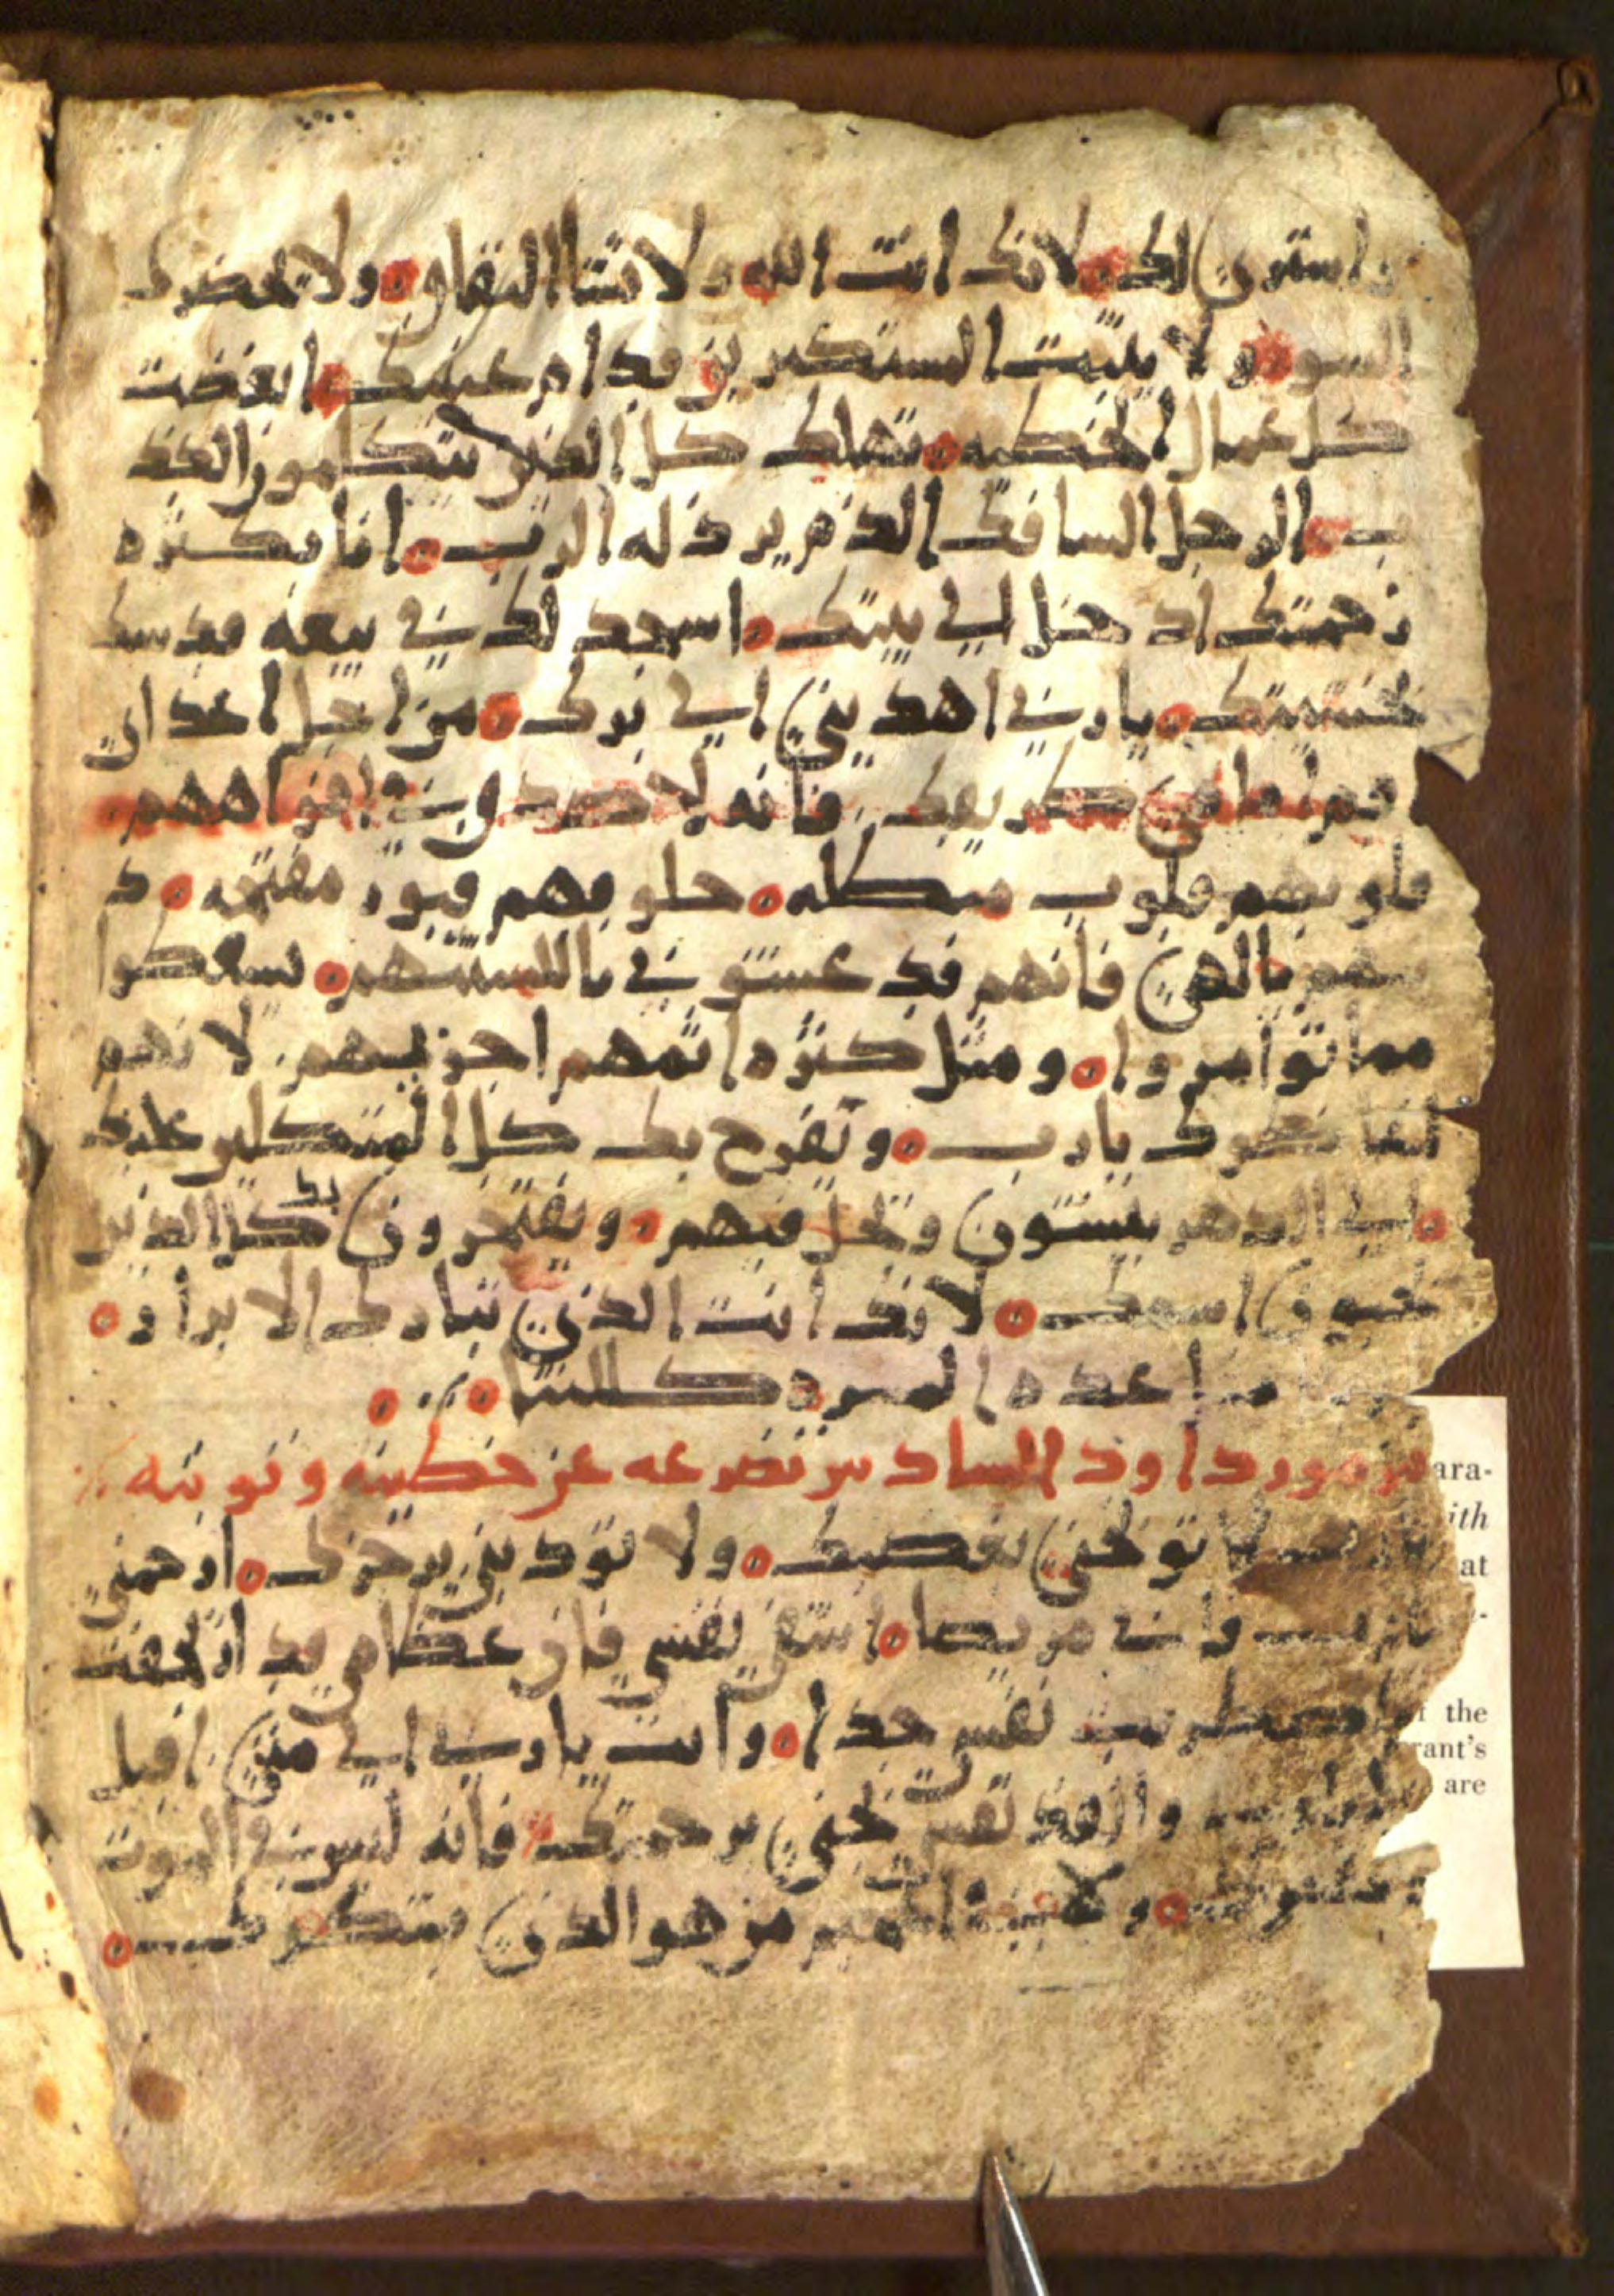 واستون لك لانك انت الله ولا تشا النفاق ولا يحضرك
السو ولا يثبت المستكبرين قدام عينيك ابغضت
كل عمال الخطيه تهلك كل الذين يتكلمون الكذ
ب الرجل السافك الدم يرذله الرب انا بكثره
رحمتك ادخل الى بيتك اسجد لك في بيعه قدسك
بخشيتك يا رب اهديني الى برك من اجل اعداي
طريقك فانه لا صدق في افواههم
قلوبهم قلوب مبطله حلوقهم قبور مفتحه د
ينهم يالهي فانهم قد غشوني بالسنتهم يسقطوا
مما توامروا ومثل كثره اثمهم اجزيهم لانهم
يا رب وتفرح بك كل المتوكلين عليك
الى الدهر يبشون وتحل فيهم ويفتخرون بك كل الذين
يحبون اسمك لانك انت الذي تبارك الابرار
المسره كللتنا
مزمور داود السادس تضرعه عن خطيته وتوبته
يا رب لا توبخني بغضبك ولا تودبني برجزك ارحمني
يا رب فاني مريضا اشفي نفسي فان عظامي قد ارتجفت
اضطربت نفسي جدا وانت يا رب الى متى اقبل
وانقذ نفسي نجني برحمتك فانه ليس في الموت
ولا في الجحيم من هو الذي يشكرك
ara-
ith
at
f the
rant's
are